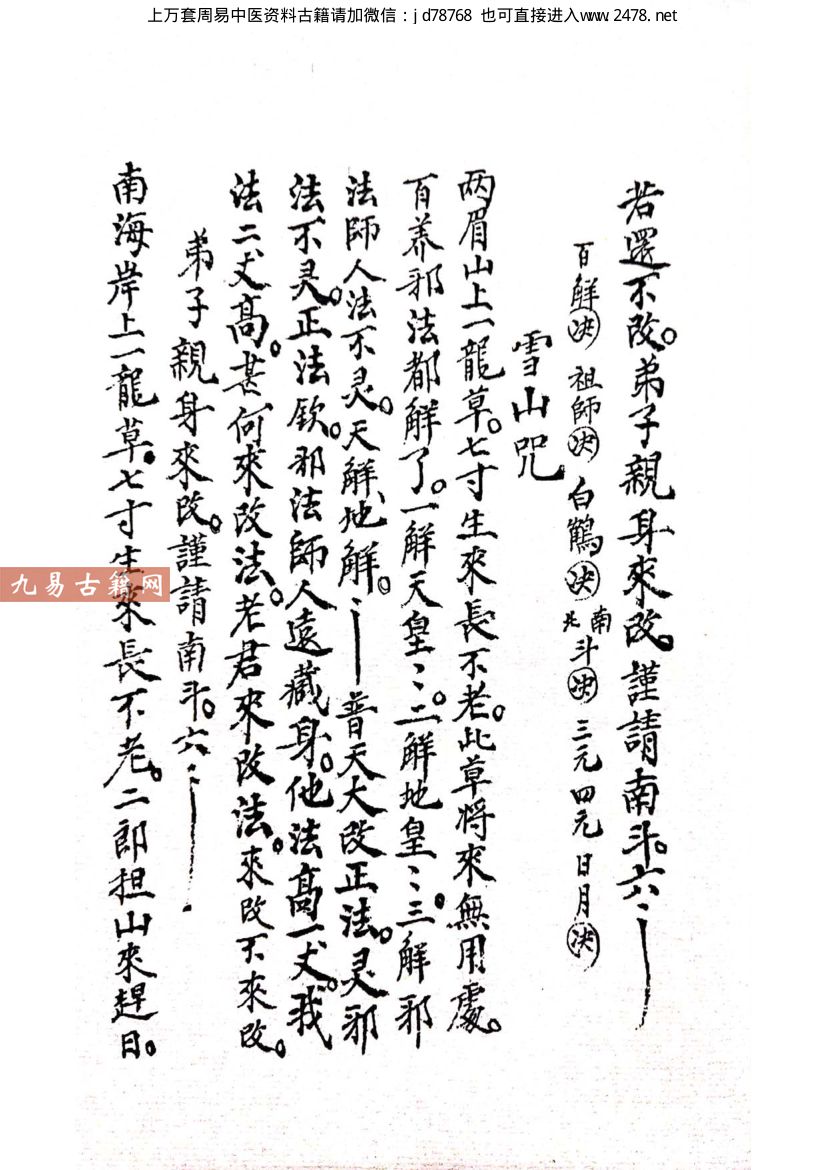 上万套周易中医资料古籍请加微信：jd78768 也可直接进入www.2478.net
若還不改。弟子親身來改。謹請南斗。六〻
百解决 祖師决 白鶴决 南北斗决 三元四元日月决
雪山咒
两眉山上一龍草。七寸生來長不老。此草将來無用處。
百养邪法都解了。一解天皇〻。二解地皇〻。三解邪
法師人法不灵。天解地解。〻 普天大改正法。灵邪
法不灵。正法欽。邪法師人遠藏身。他法高一丈。我
法二丈高。甚何來改法。老君來改法。來改不來改。
弟子親身來改。謹請南斗。六〻
南海岸上一龍草。七寸生來長不老。二郎担山來趕日。
九易古籍网